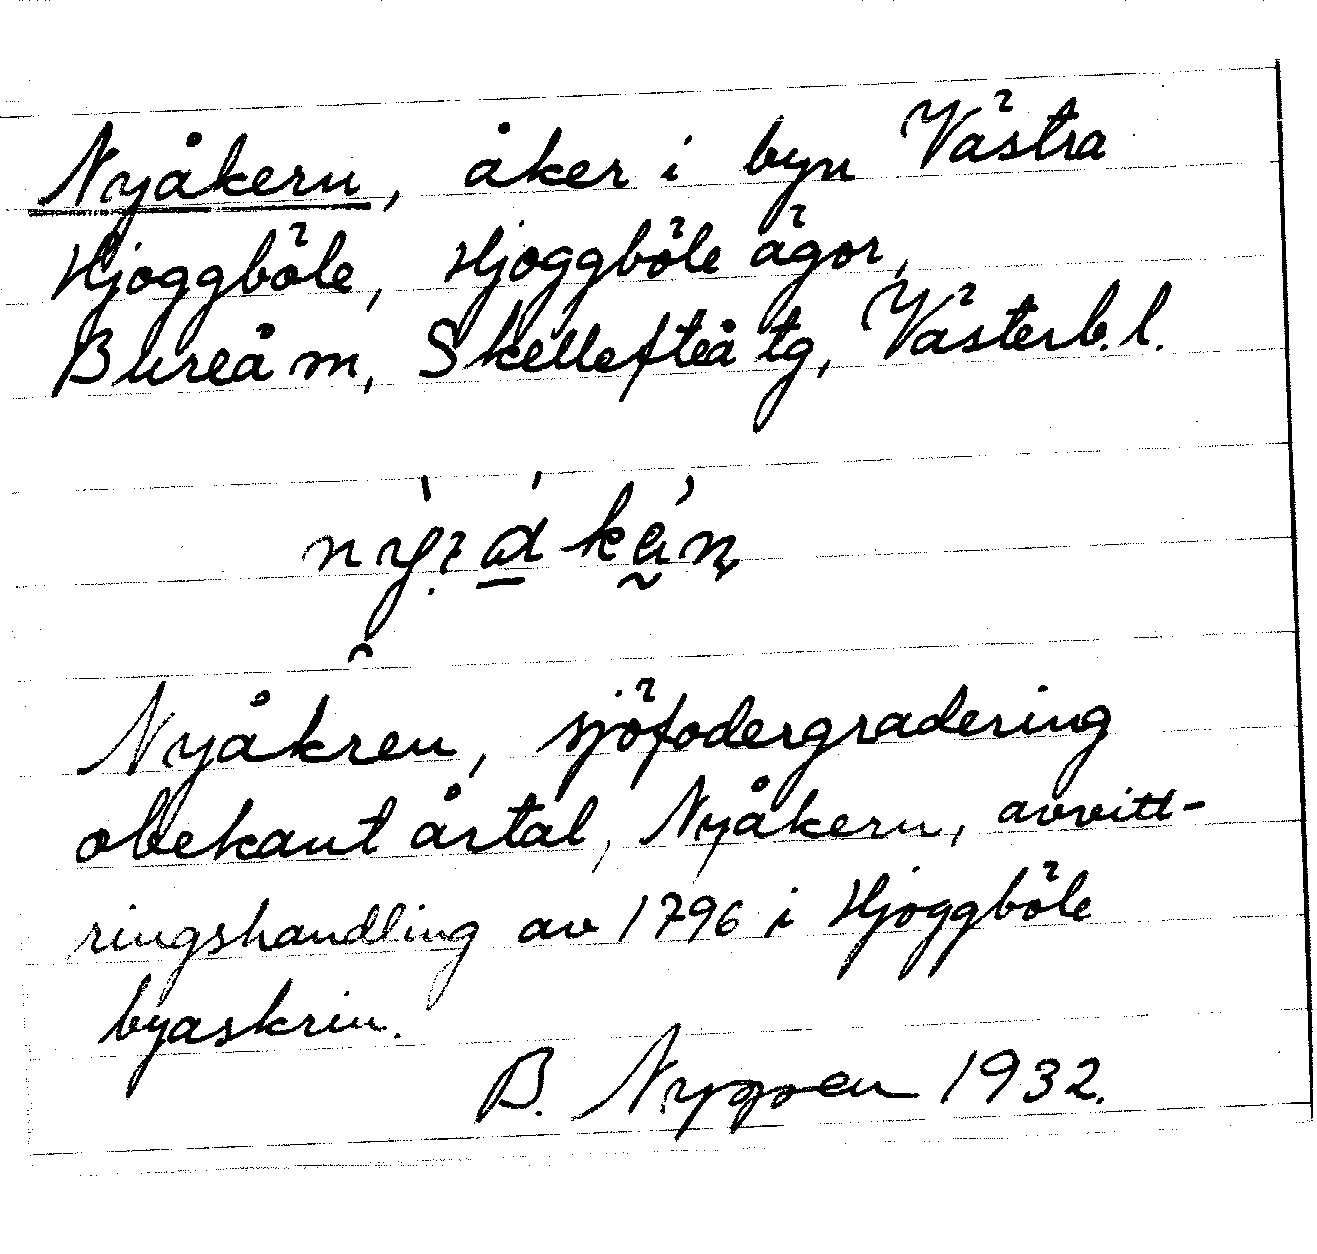 Nyåkern, åker i byn Västra
Hjoggböle, Hjoggböle ägor,
Bureå m, Skellefteå tg, Västerb. l.
Nyåkren, sjöfodergradering
obekant årtal, Nyåkern, avvitt-
ringshandling av 1796 i Hjoggböle
byaskrin.
B. 1932.